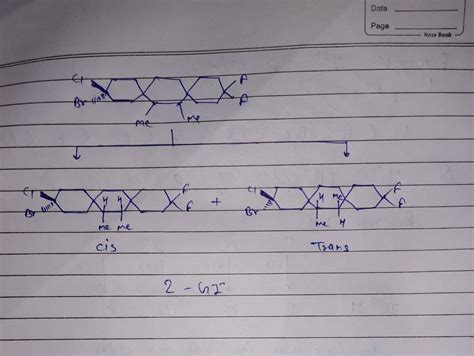 Date
Page
Note Book
Cl F
Br F
Me Me
Cl H H F + Cl H Me F
Br F Br F
Me Me Me H
cis Trans
2 - GI